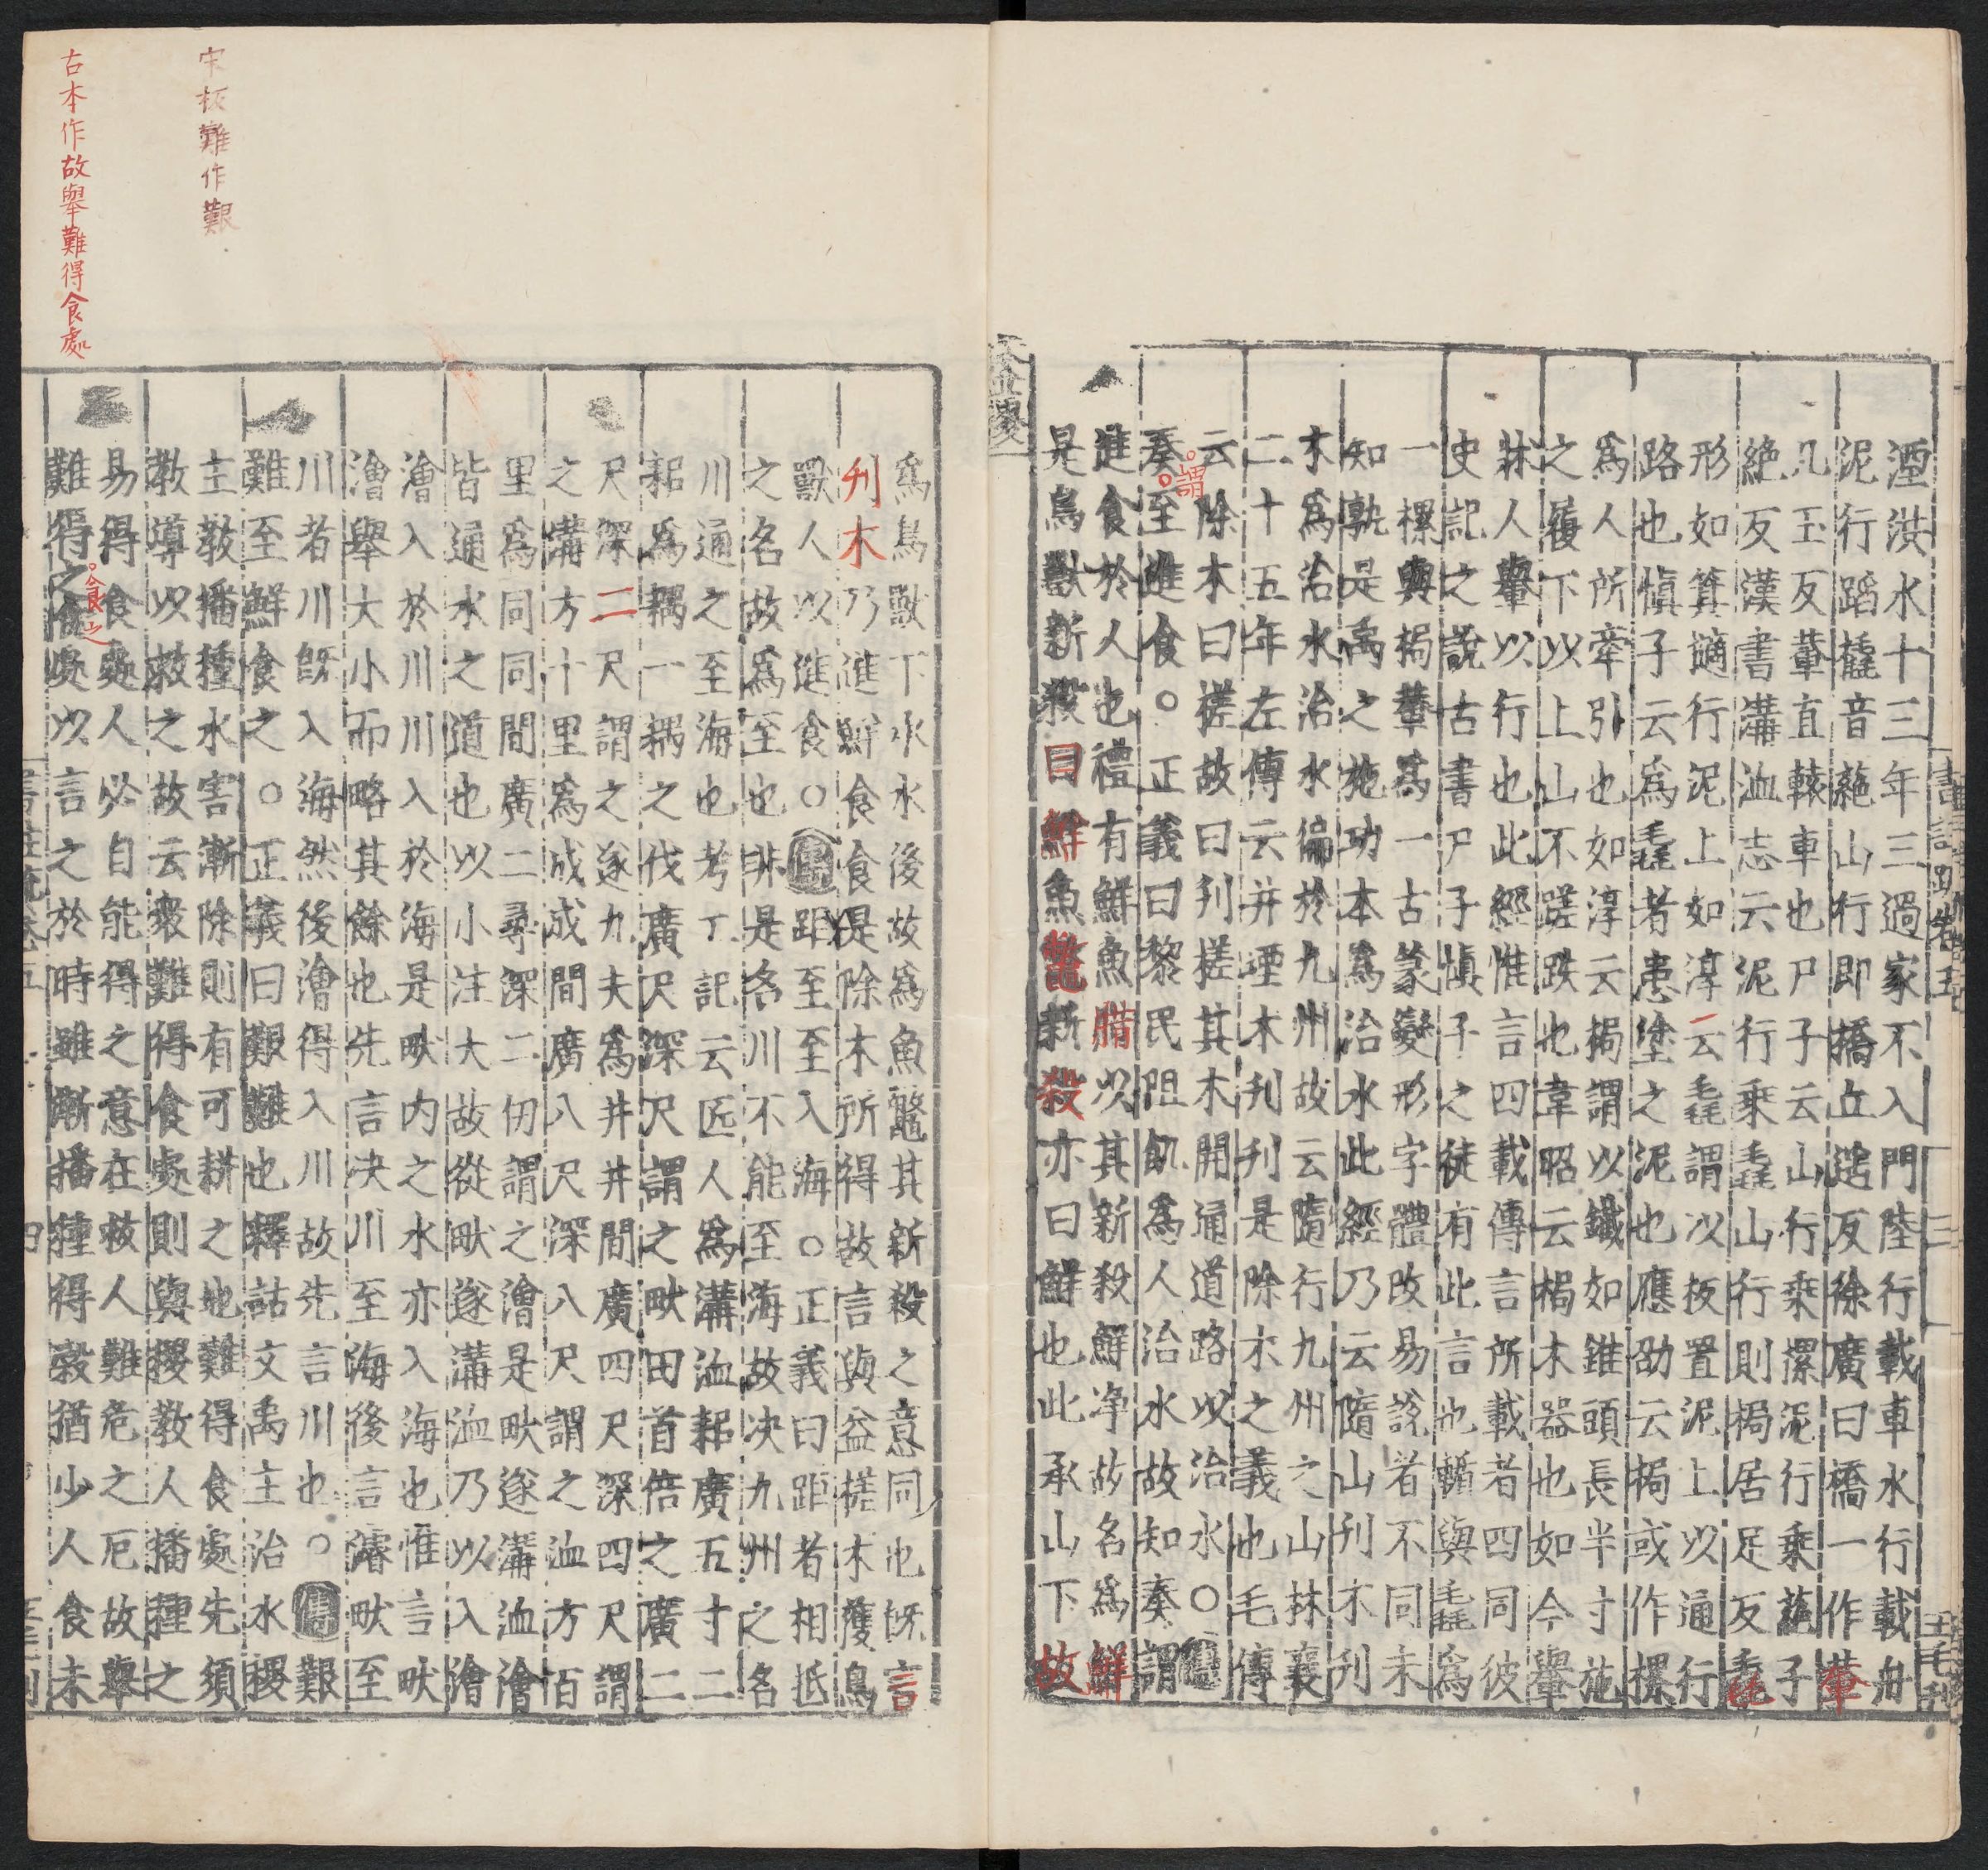 湮洪水十三年三過家不入門陸行載車水行載舟
泥行蹈橇音蕝山行即橋丘遥反徐廣曰橋一作輂
几玉反輂直轅車也尸子云山行乘樏泥行乘蕝子
絶反漢書溝洫志云泥行乘毳山行則梮居足反毳
形如箕擿行泥上如淳云毳謂以板置泥上以通行
路也慎子云爲毳者患塗之泥也應劭云梮或作樏
爲人所牽引也如淳云梮謂以鐵如錐頭長半寸施
之履下以上山不蹉跌也韋昭云梮木器也如今轝
牀人轝以行也此經惟言四載傳言所載者四同彼
史記之說古書尸子慎子之徒有此言也輴與毳爲
一樏與梮輂爲一古篆變形字體改易說者不同未
知孰是禹之施功本爲治水此經乃云隨山刊木刊
木爲治水治水徧於九州故云隨行九州之山林襄
二十五年左傳云井堙木刊刊是除木之義也毛傳
云除木曰槎故曰刊槎其木開通道路以治水○傳
奏謂至進食○正義曰黎民阻飢爲人治水故知奏謂
進食於人也禮有鮮魚腊以其新殺鮮净故名爲鮮
是鳥獸新殺曰鮮魚鼈新殺亦曰鮮也此承山下故
爲鳥獸下承水後故爲魚鼈其新殺之意同也既言
刋木乃進鮮食食是除木所得故言與益槎木獲鳥
獸人以進食○傳距至至入海○正義曰距者相抵
之名故爲至也非是名川不能至海故决九州之名
川通之至海也考工記云匠人爲溝洫耜廣五寸二
耜爲耦一耦之伐廣尺深尺謂之畎田首倍之廣二
尺深二尺謂之遂九夫爲井井間廣四尺深四尺謂
之溝方十里爲成成間廣八尺深八尺謂之洫方百
里爲同同間廣二尋深二仞謂之澮是畎遂溝洫澮
皆通水之道也以小注大故從畎遂溝洫乃以入澮
澮入於川川入於海是畎内之水亦入海也惟言畎
澮舉大小而略其餘也先言决川至海後言濬畎至
川者川既入海然後澮得入川故先言川也○傳艱
難至鮮食之○正義曰艱難也釋詁文禹主治水稷
主敎播種水害漸除則有可耕之地難得食處先須
教導以救之故云衆難得食處則與稷教人播種之
易得食處人必自能得之意在救人難危之厄故舉
難得之食處以言之於時雖漸播種得穀猶少人食未
宋板難作艱
古本作故舉難得食處
謂
食之